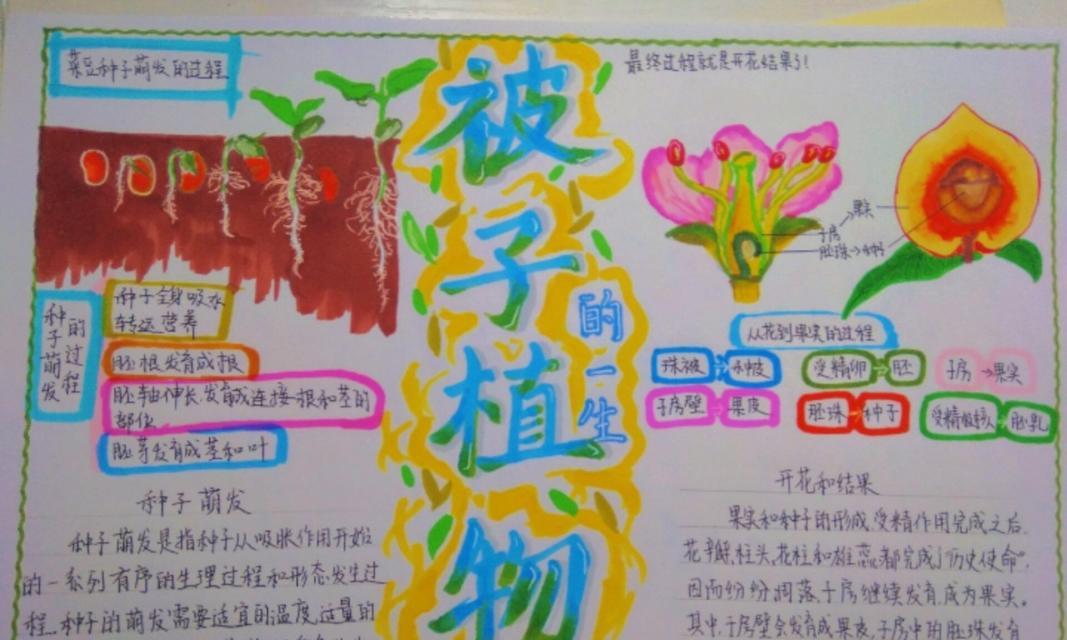 菜豆种子萌发的过程
最终过程就是开花结果了!
被子植物
的一生
果实
子房
胚珠→种子
种子萌发
的过程
种子全身吸水
转运营养
胚根发育成根
胚轴伸长,发育成连接根和茎的
部位
胚芽发育成茎和叶
从花到果实的过程
珠被→种皮
受精卵→胚
子房→果实
子房壁→果皮
胚珠→种子
受精极核→胚乳
种子萌发
种子萌发是指种子从吸胀作用开始
的一系列有序的生理过程和形态发生过
程。种子的萌发需要适宜的温度,适量的
开花和结果
果实和种子的形成,受精作用完成之后,
花瓣,柱头,花柱和雄蕊都完成了"历史使命",
因而纷纷凋落。子房继续发育,成为果实。
其中,子房壁会发育成果皮,子房中的胚珠发育